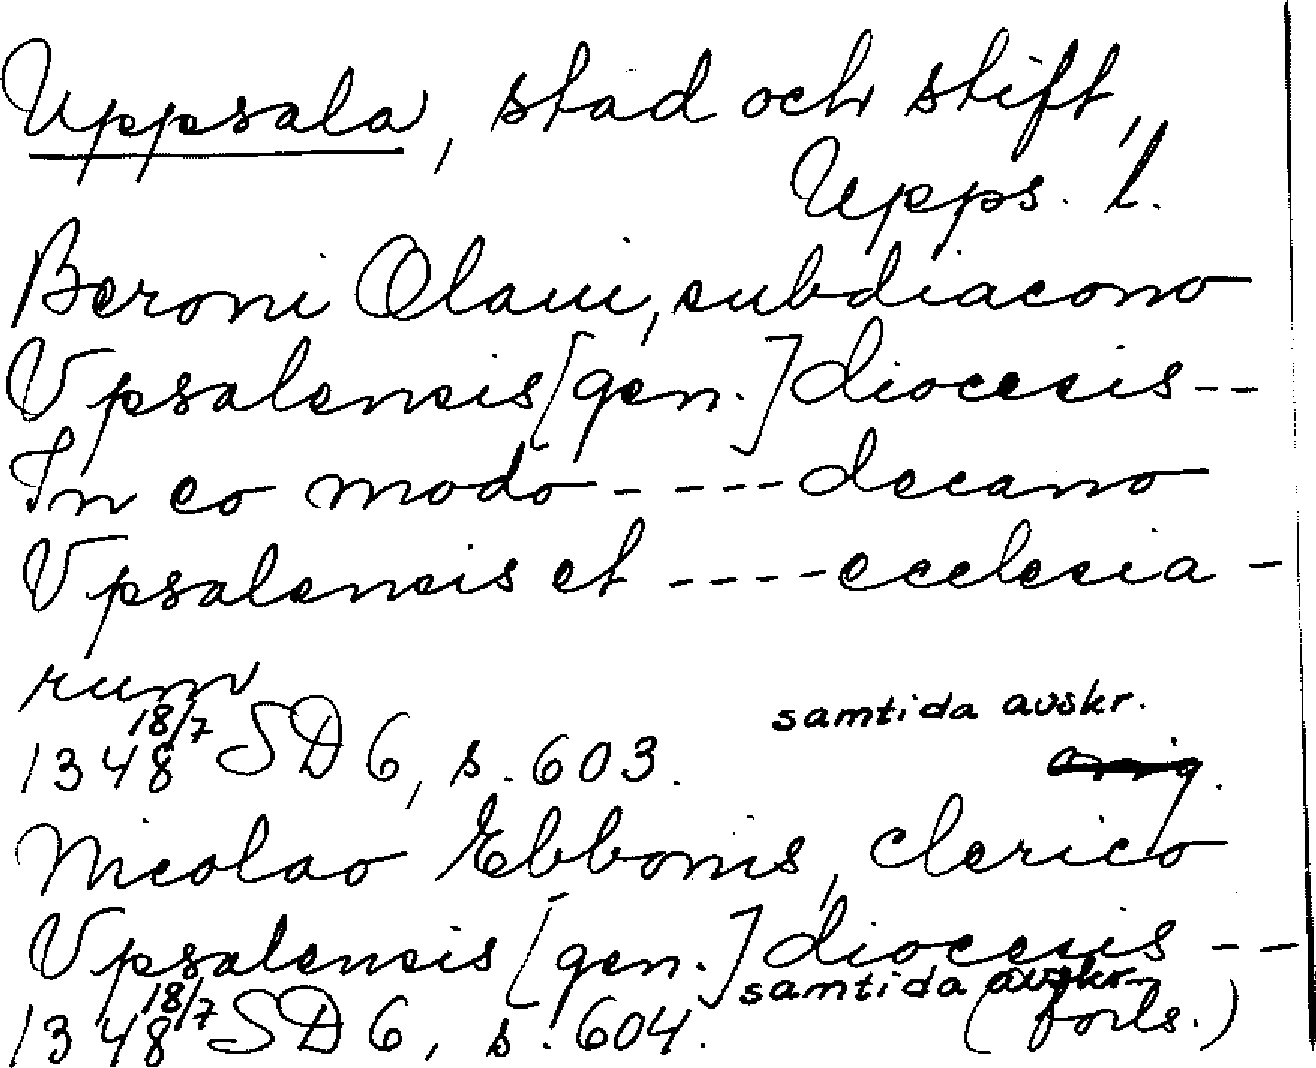 Uppsala, stad och stift,
Upps. l.
Beroni Olaui, subdiacono
Vpsalensis [gen.] diocesis --
In eo modo ---- decano
Vpsalensis et ---- ecclesia-
rum
samtida avskr.
1348 18/7 SD 6, s. 603. orig.
Nicolao Ebbonis, clerico
Vpsalensis [gen.] diocesis --
samtida avskr.
1348 18/7 SD 6, s. 604. (forts.)